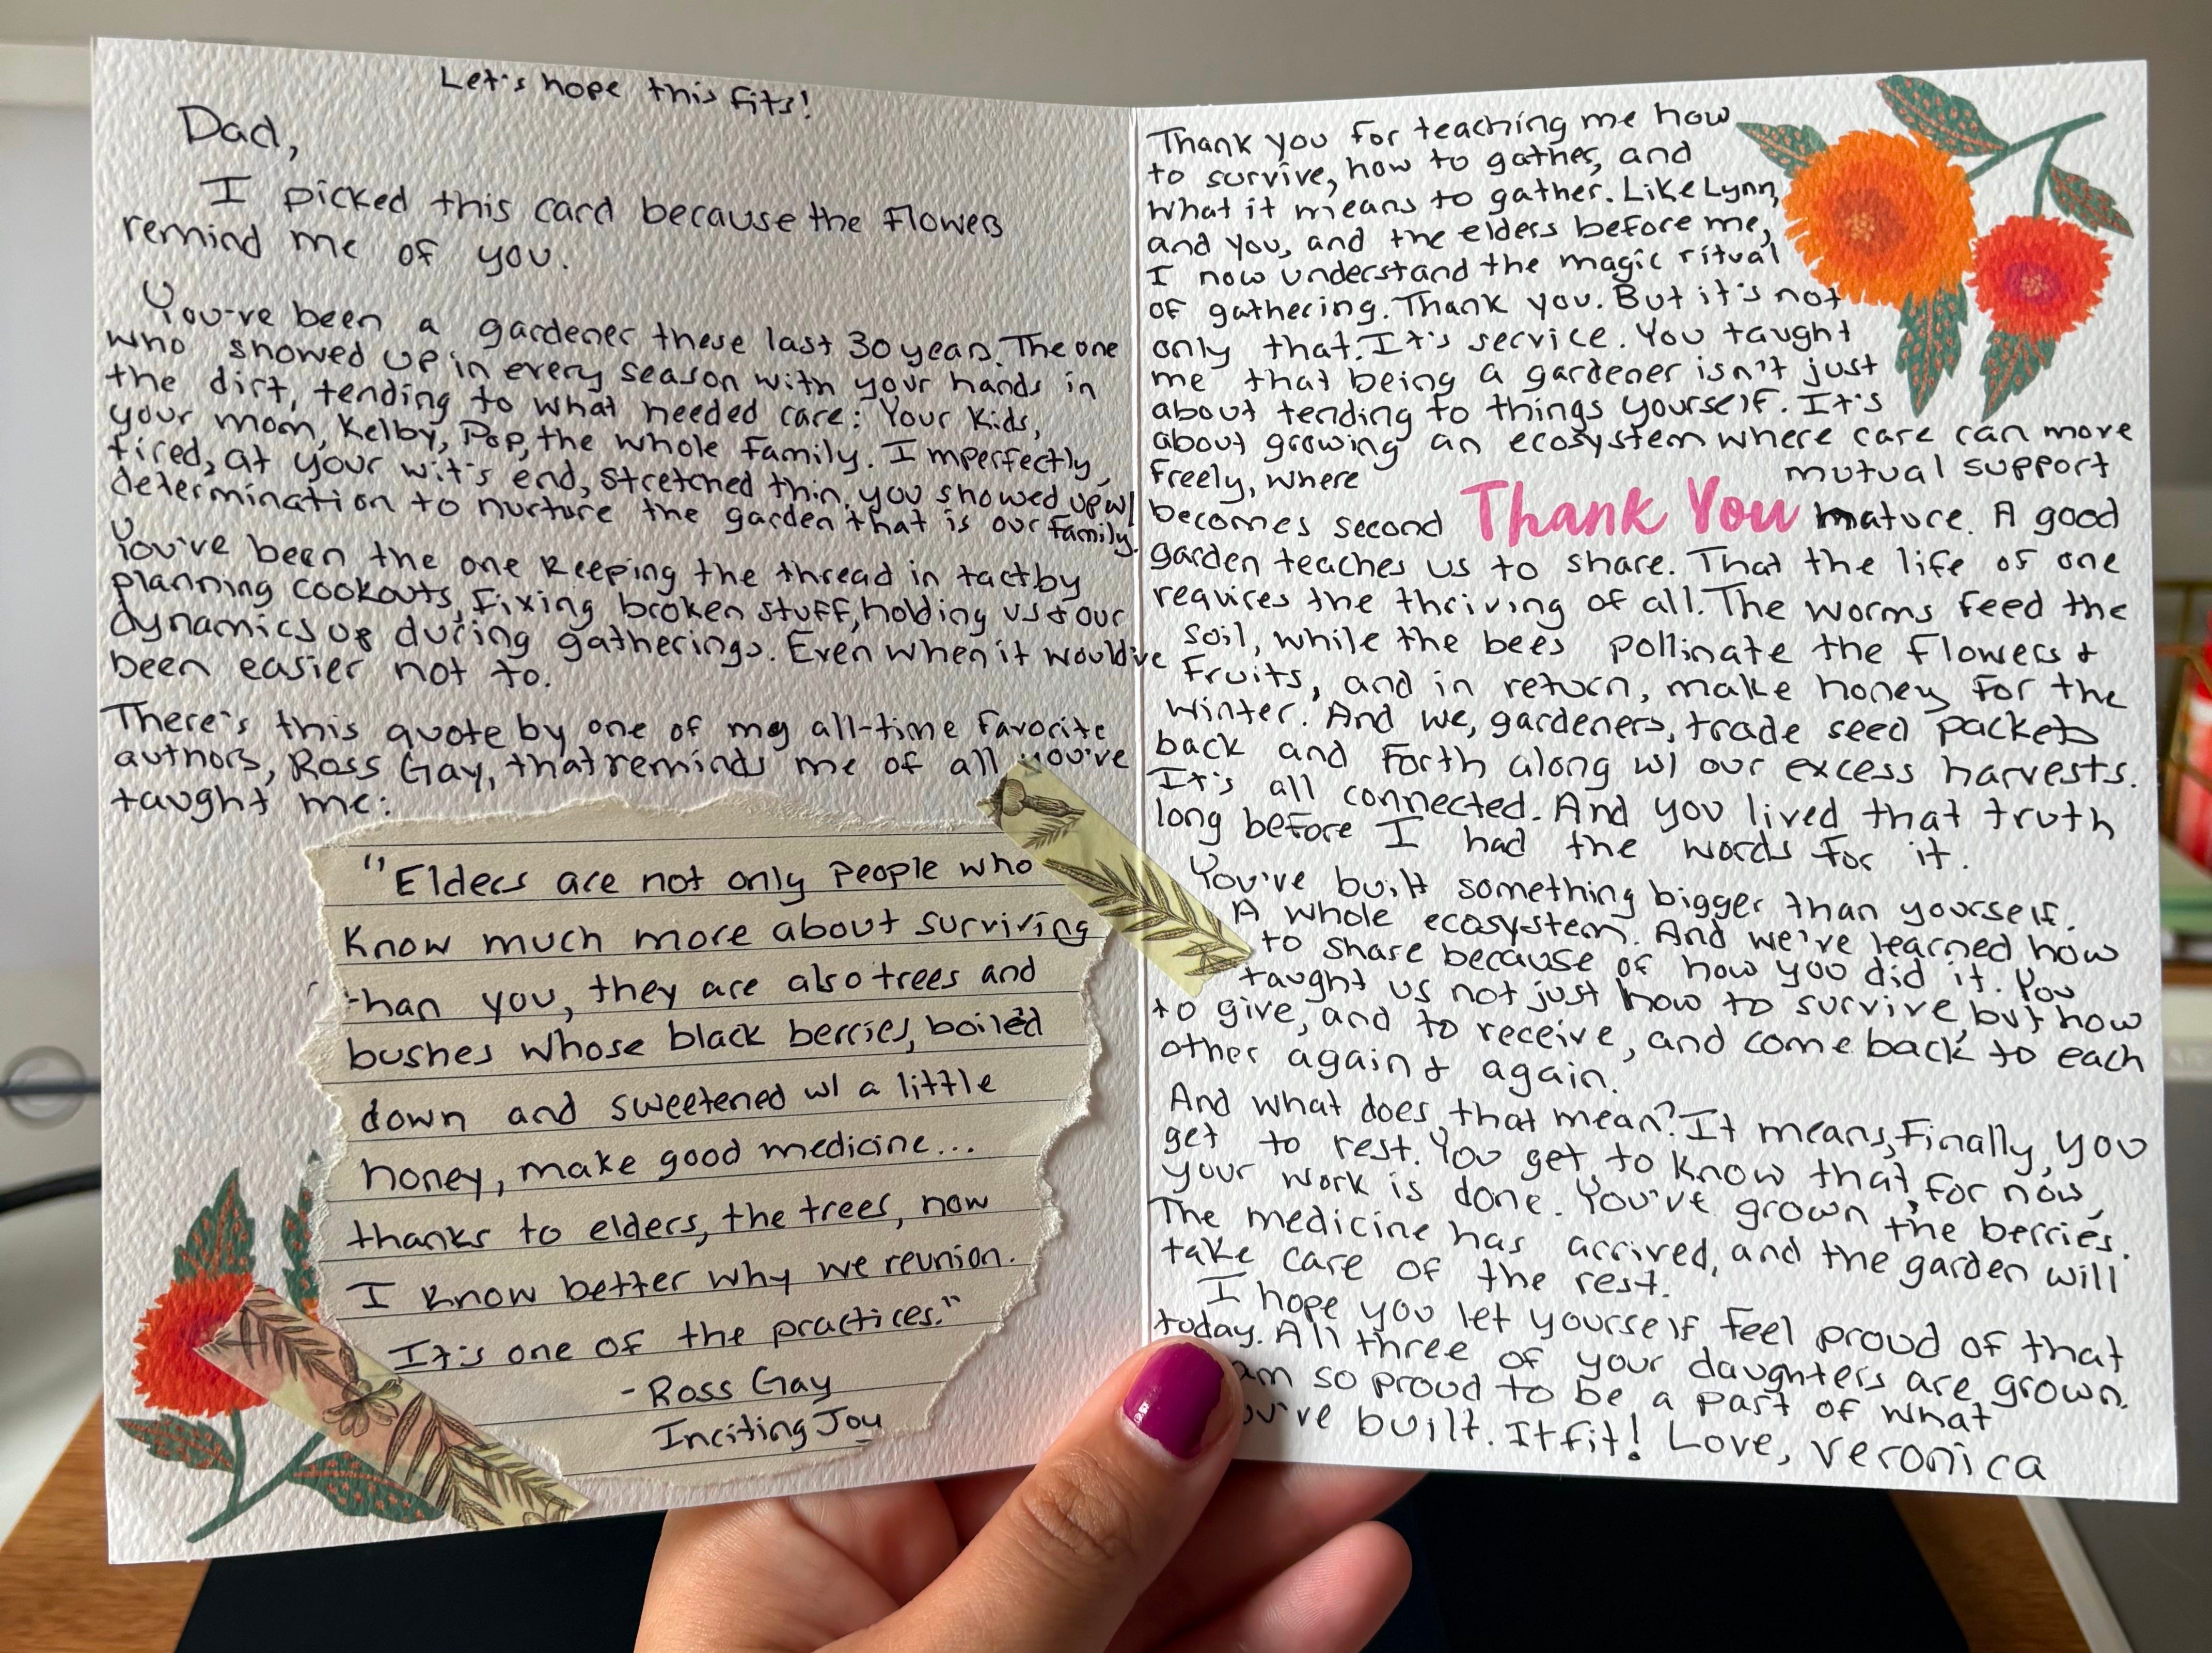 Let's hope this fits!
Dad,
I picked this card because the flowers
remind me of you.
You've been a gardener these last 30 years. The one
who showed up in every season with your hands in
the dirt, tending to what needed care: Your Kids,
your mom, Kelby, Pop, the whole family. Imperfectly,
tired, at your wit's end, stretched thin, you showed up w/
determination to nurture the garden that is our family.
You've been the one keeping the thread in tact by
planning cookouts, fixing broken stuff, holding us & our
dynamics up during gatherings. Even when it would've
been easier not to.
There's this quote by one of my all-time favorite
authors, Ross Gay, that reminds me of all you've
taught me:
"Elders are not only people who
know much more about surviving
than you, they are also trees and
bushes whose black berries, boiled
down and sweetened w/ a little
honey, make good medicine...
thanks to elders, the trees, now
I know better why we reunion.
It's one of the practices."
- Ross Gay
Inciting Joy
Thank you for teaching me how
to survive, how to gather, and
what it means to gather. Like Lynn,
and you, and the elders before me,
I now understand the magic ritual
of gathering. Thank you. But it's not
only that. It's service. You taught
me that being a gardener isn't just
about tending to things yourself. It's
about growing an ecosystem where care can more
freely, where mutual support
becomes second Thank You nature. A good
garden teaches us to share. That the life of one
requires the thriving of all. The worms feed the
soil, while the bees pollinate the flowers &
fruits, and in return, make honey for the
winter. And we, gardeners, trade seed packets
back and forth along w/ our excess harvests.
It's all connected. And you lived that truth
long before I had the words for it.
You've built something bigger than yourself.
A whole ecosystem. And we've learned how
to share because of how you did it. You
taught us not just how to survive, but how
to give, and to receive, and come back to each
other again & again.
And what does that mean? It means, finally, you
get to rest. You get to know that, for now,
your work is done. You've grown the berries.
The medicine has arrived, and the garden will
take care of the rest.
I hope you let yourself feel proud of that
today. All three of your daughters are grown.
am so proud to be a part of what
've built. It fit! Love, Veronica